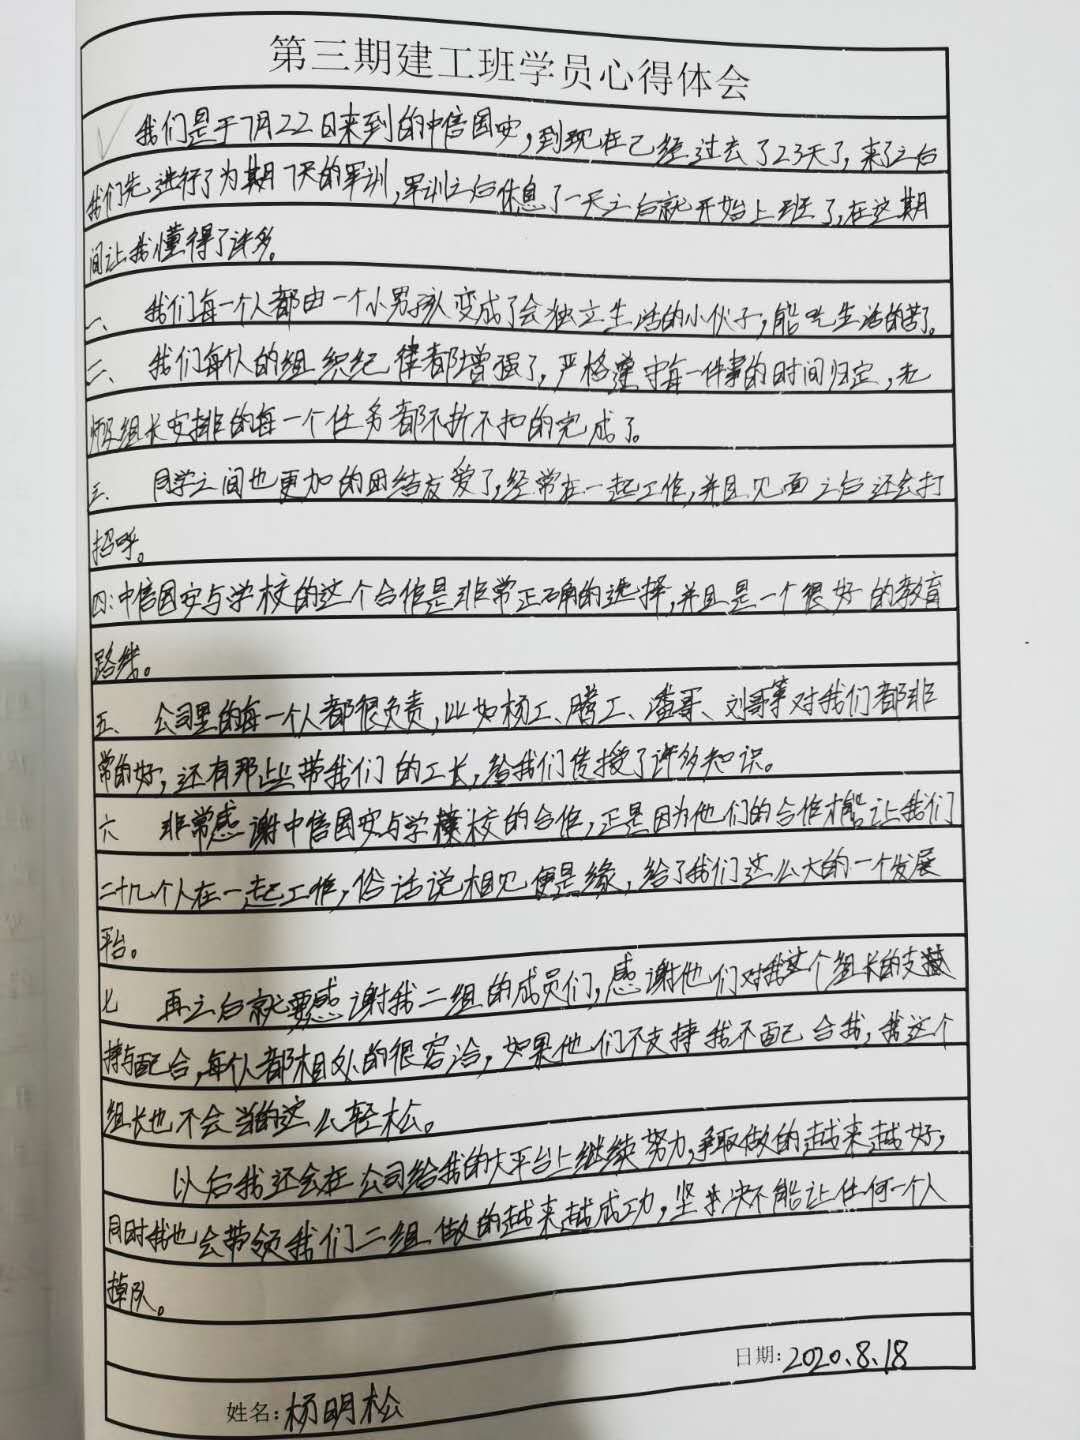 第三期建工班学员心得体会
我们是于7月22日来到的中信国安,到现在已经过去了23天了,来了之后
我们先进行了为期7天的军训,军训之后休息了一天之后就开始上班了,在这期
间让我懂得了许多。
一、我们每一个人都由一个小男孩变成了会独立生活的小伙子,能吃生活的苦了。
二、我们每人的组织纪律都增强了,严格遵守每一件事的时间归定,无
组长安排的每一个任务都不折不扣的完成了。
三、同学之间也更加的团结友爱了,经常在一起工作,并且见面之后还会打
招呼。
四:中信国安与学校的这个合作是非常正确的选择,并且是一个很好的教育
路线。
五、公司里的每一个人都很负责,比如杨工、腾工、潘哥、刘哥等对我们都非
常的好,还有那些带我们的工长,给我们传授了许多知识。
六 非常感谢中信国安与学校的合作,正是因为他们的合作才能让我们
二十几个人在一起工作,俗话说相见便是缘,给了我们这么大的一个发展
平台。
七 再之后就要感谢我二组的成员们,感谢他们对我这个组长的支
持与配合,每人都相处的很容洽,如果他们不支持我不配合我,我这个
组长也不会当的这么轻松。
以后我还会在公司给我的大平台上继续努力,争取做的越来越好,
同时我也会带领我们二组做的越来越成功,坚决不能让任何一个人
掉队。
日期:2020.8.18
姓名:杨明松